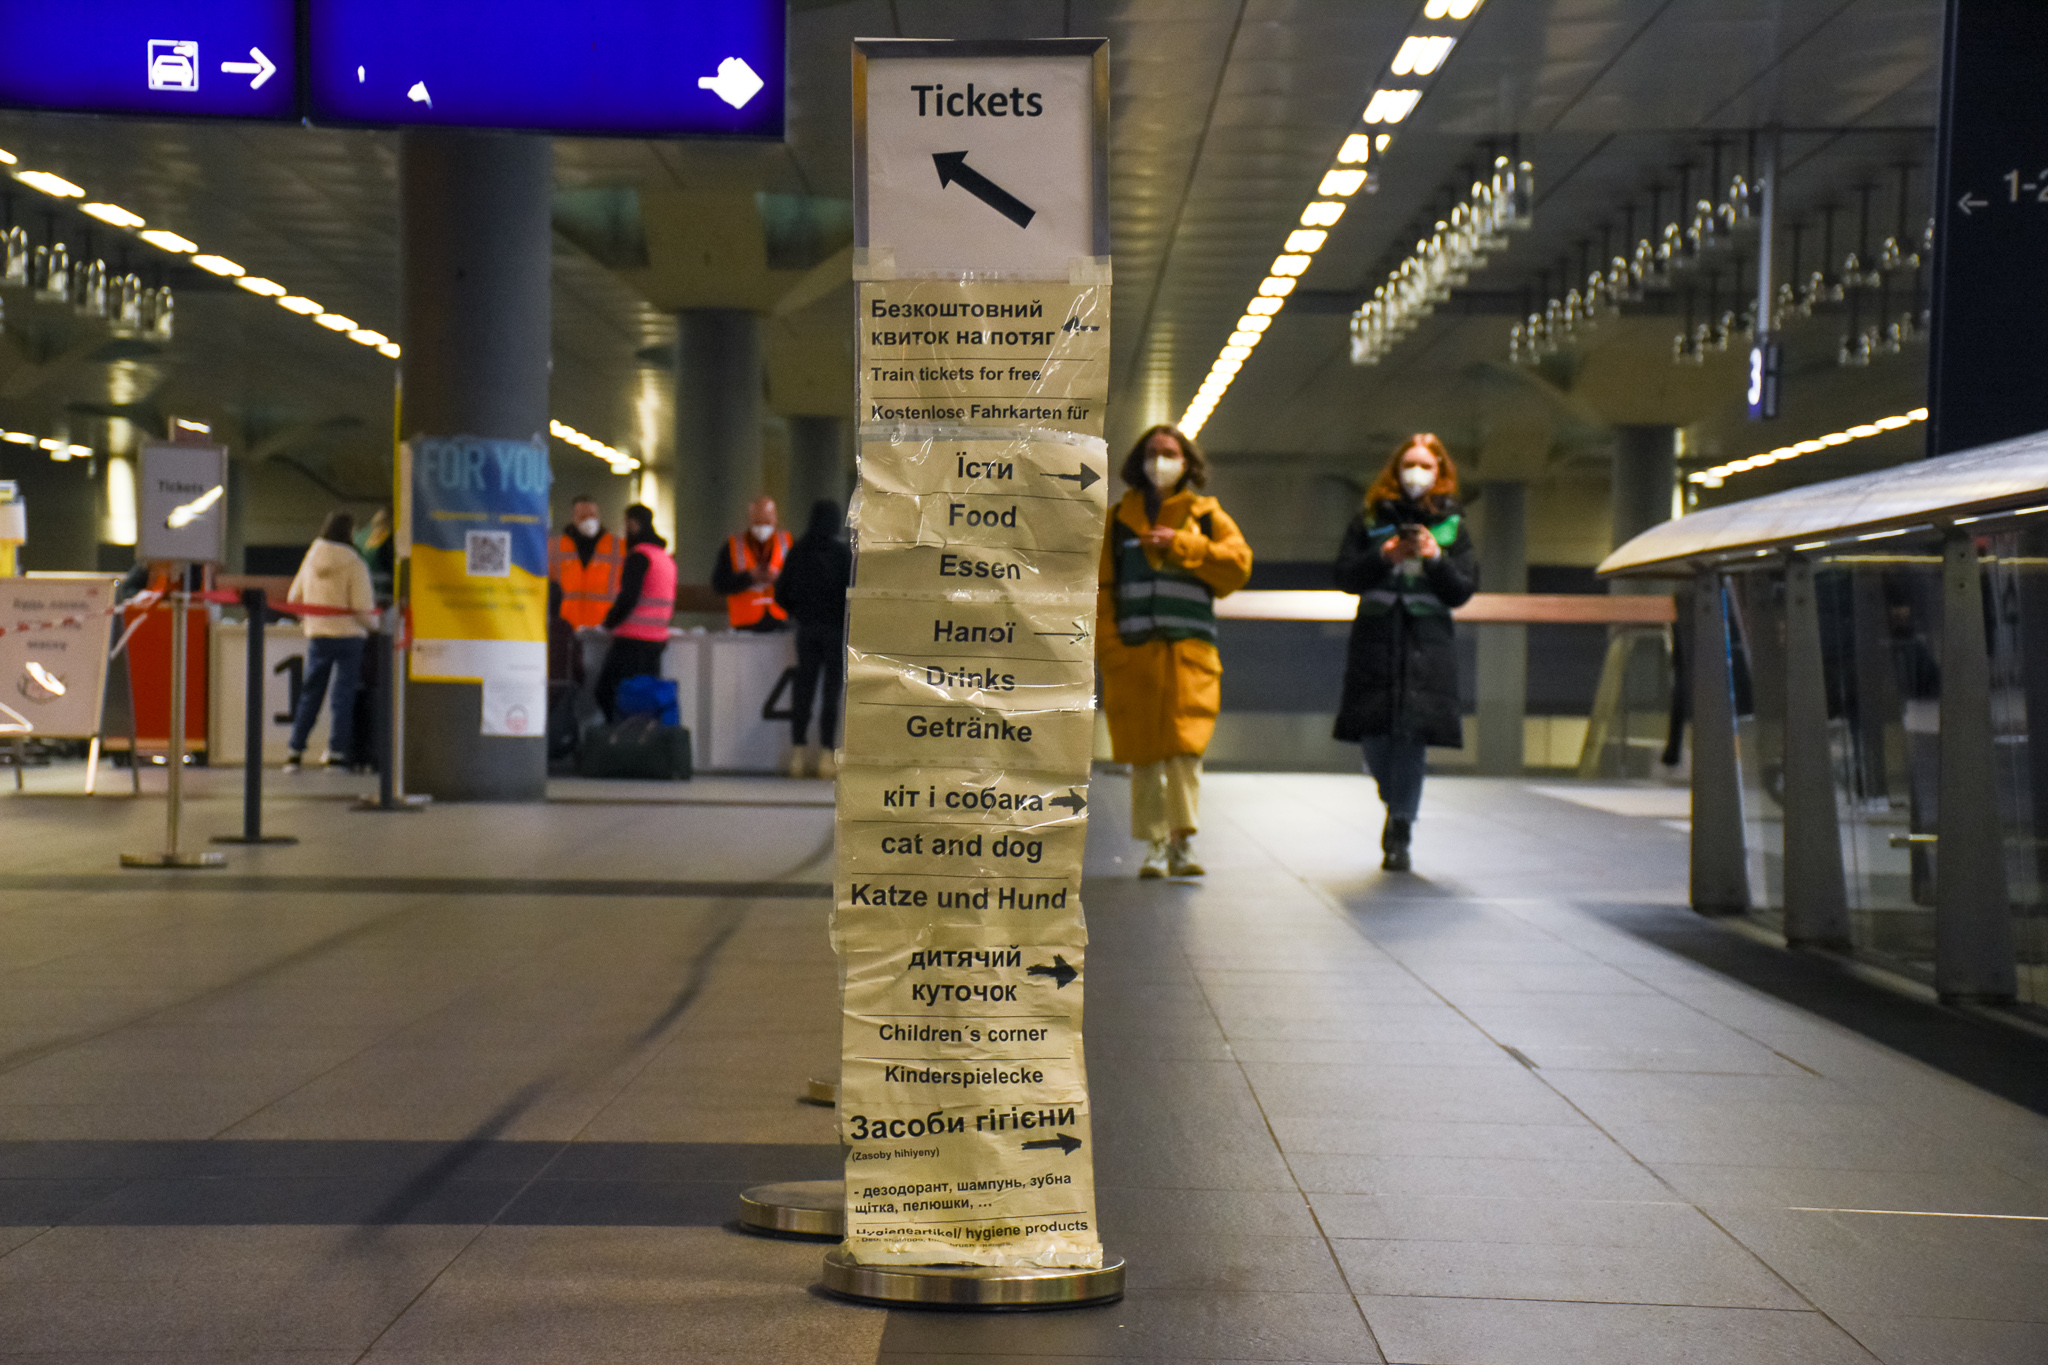 Tickets
Безкоштовний
квиток на потяг
Train tickets for free
Kostenlose Fahrkarten für
Їсти
Food
Essen
Напої
Drinks
Getränke
кіт і собака
cat and dog
Katze und Hund
дитячий
куточок
Children´s corner
Kinderspielecke
Засоби гігієни
(Zasoby hihiyeny)
- дезодорант, шампунь, зубна
щітка, пелюшки, ...
Hygieneartikel/ hygiene products
FOR YOU
Tickets
1
4
3
1-2